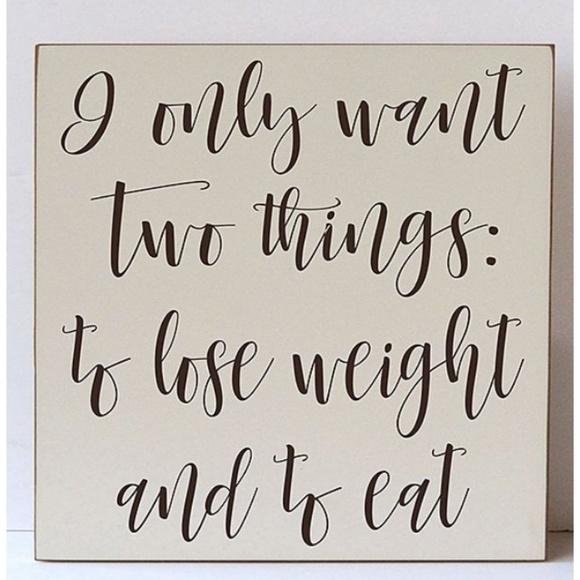 I only want
two things:
to lose weight
and to eat